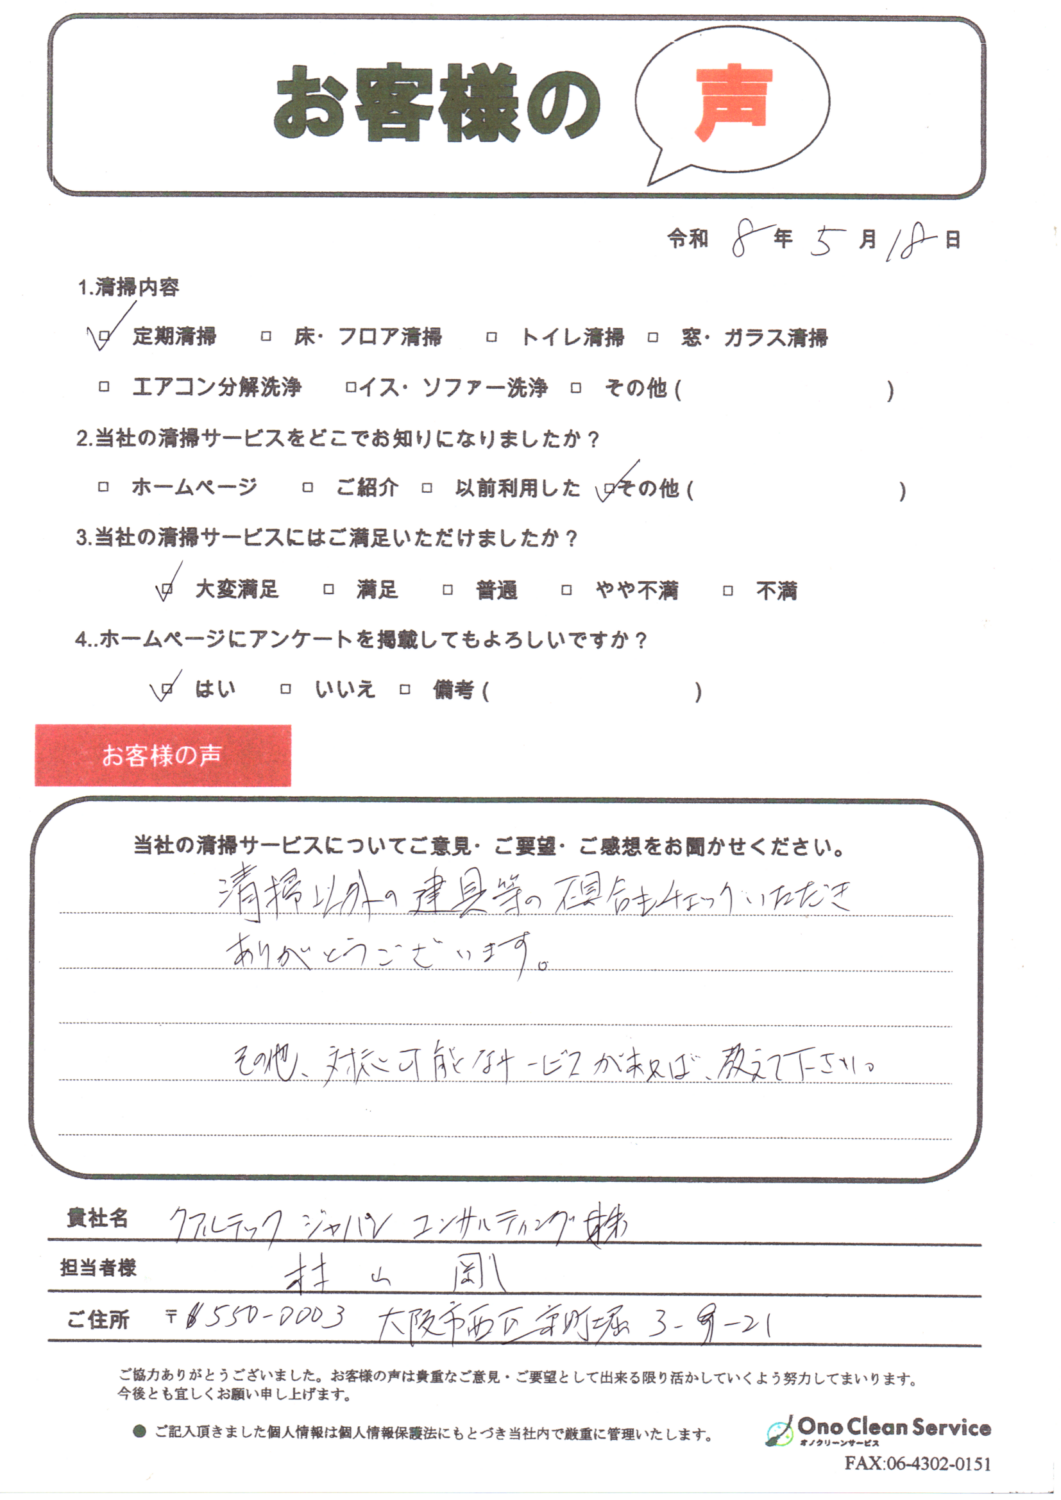 お客様の 声
令和 8 年 5 月 18 日
1.清掃内容
□ 定期清掃 □ 床・フロア清掃 □ トイレ清掃 □ 窓・ガラス清掃
□ エアコン分解洗浄 □イス・ソファー洗浄 □ その他 ( )
2.当社の清掃サービスをどこでお知りになりましたか？
□ ホームページ □ ご紹介 □ 以前利用した □その他 ( )
3.当社の清掃サービスにはご満足いただけましたか？
□ 大変満足 □ 満足 □ 普通 □ やや不満 □ 不満
4..ホームページにアンケートを掲載してもよろしいですか？
□ はい □ いいえ □ 備考 ( )
お客様の声
当社の清掃サービスについてご意見・ご要望・ご感想をお聞かせください。
清掃以外の建具等の具合もチェックいただき
ありがとうございます。
その他、対応可能なサービスが有れば、教えて下さい。
貴社名 クアルテック ジャパン コンサルティング 株
担当者様 村山 剛
ご住所 〒550-0003 大阪市西区京町堀 3-21
ご協力ありがとうございました。お客様の声は貴重なご意見・ご要望として出来る限り活かしていくよう努力してまいります。
今後とも宜しくお願い申し上げます。
● ご記入頂きました個人情報は個人情報保護法にもとづき当社内で厳重に管理いたします。
Ono Clean Service
オノクリーンサービス
FAX:06-4302-0151